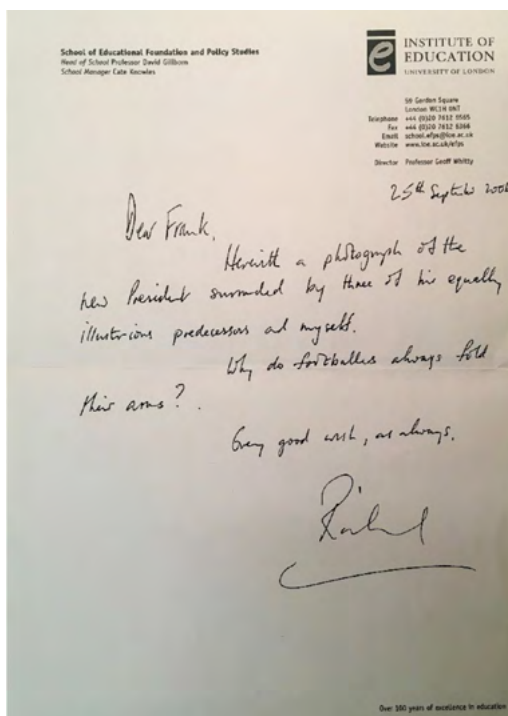 School of Educational Foundation and Policy Studies
Head of School Professor David Gillborn
School Manager Cate Knowles
INSTITUTE OF
EDUCATION
UNIVERSITY OF LONDON
59 Gordon Square
London WC1H 0NT
Telephone +44 (0)20 7612
Fax +44 (0)20 7612
Email school.efps@ioe.ac.uk
Website www.ioe.ac.uk/efps
Director Professor Geoff Whitty
25th September
Dear Frank,
Herewith a photograph of the
new President surrounded by three of his equally
illustrious predecessors and myself.
Why do footballers always fold
their arms?
Every good wish, as always,
Richard
Over 100 years of excellence in education